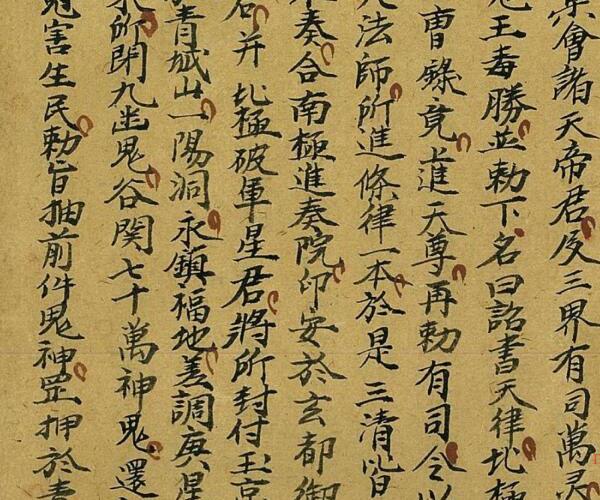 會諸天帝君及三界有司萬
王毒勝並勅下名曰詔書天律北極
曹錄竟上進天尊再勅有司令以
法師所進條律一本於是三清皆
奏合南極進奏院印安於玄都御
并北極破軍星君將所封付玉京
青城山一陽洞永鎮福地差調庚星
所閉九幽鬼谷関七十萬神鬼還
鬼害生民勅旨抽前件鬼神罡押於